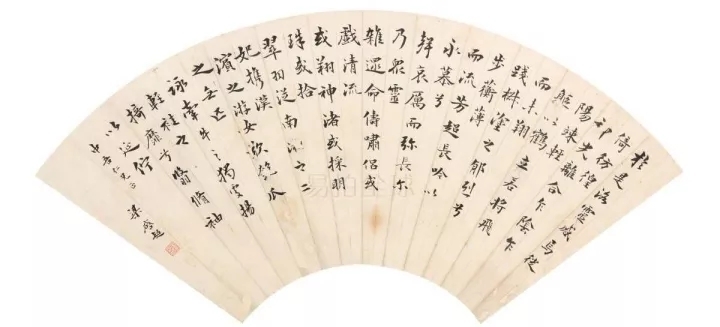 於是洛靈感焉徙
倚彷徨
神光離合乍陰乍
陽竦輕
軀以鶴立若將飛
而未翔
踐椒塗之郁烈兮
步蘅薄
而流芳超長吟以
永慕兮
聲哀厲而彌長爾
乃眾靈
雜遝命儔嘯侶或
戲清流
或翔神渚或採明
珠或拾
翠羽從南湘之二
妃攜漢
濱之游女歎匏瓜
之無匹
詠牽牛之獨處揚
輕袿之
猗靡兮翳脩袖
以延佇
仁兄
梁啟超